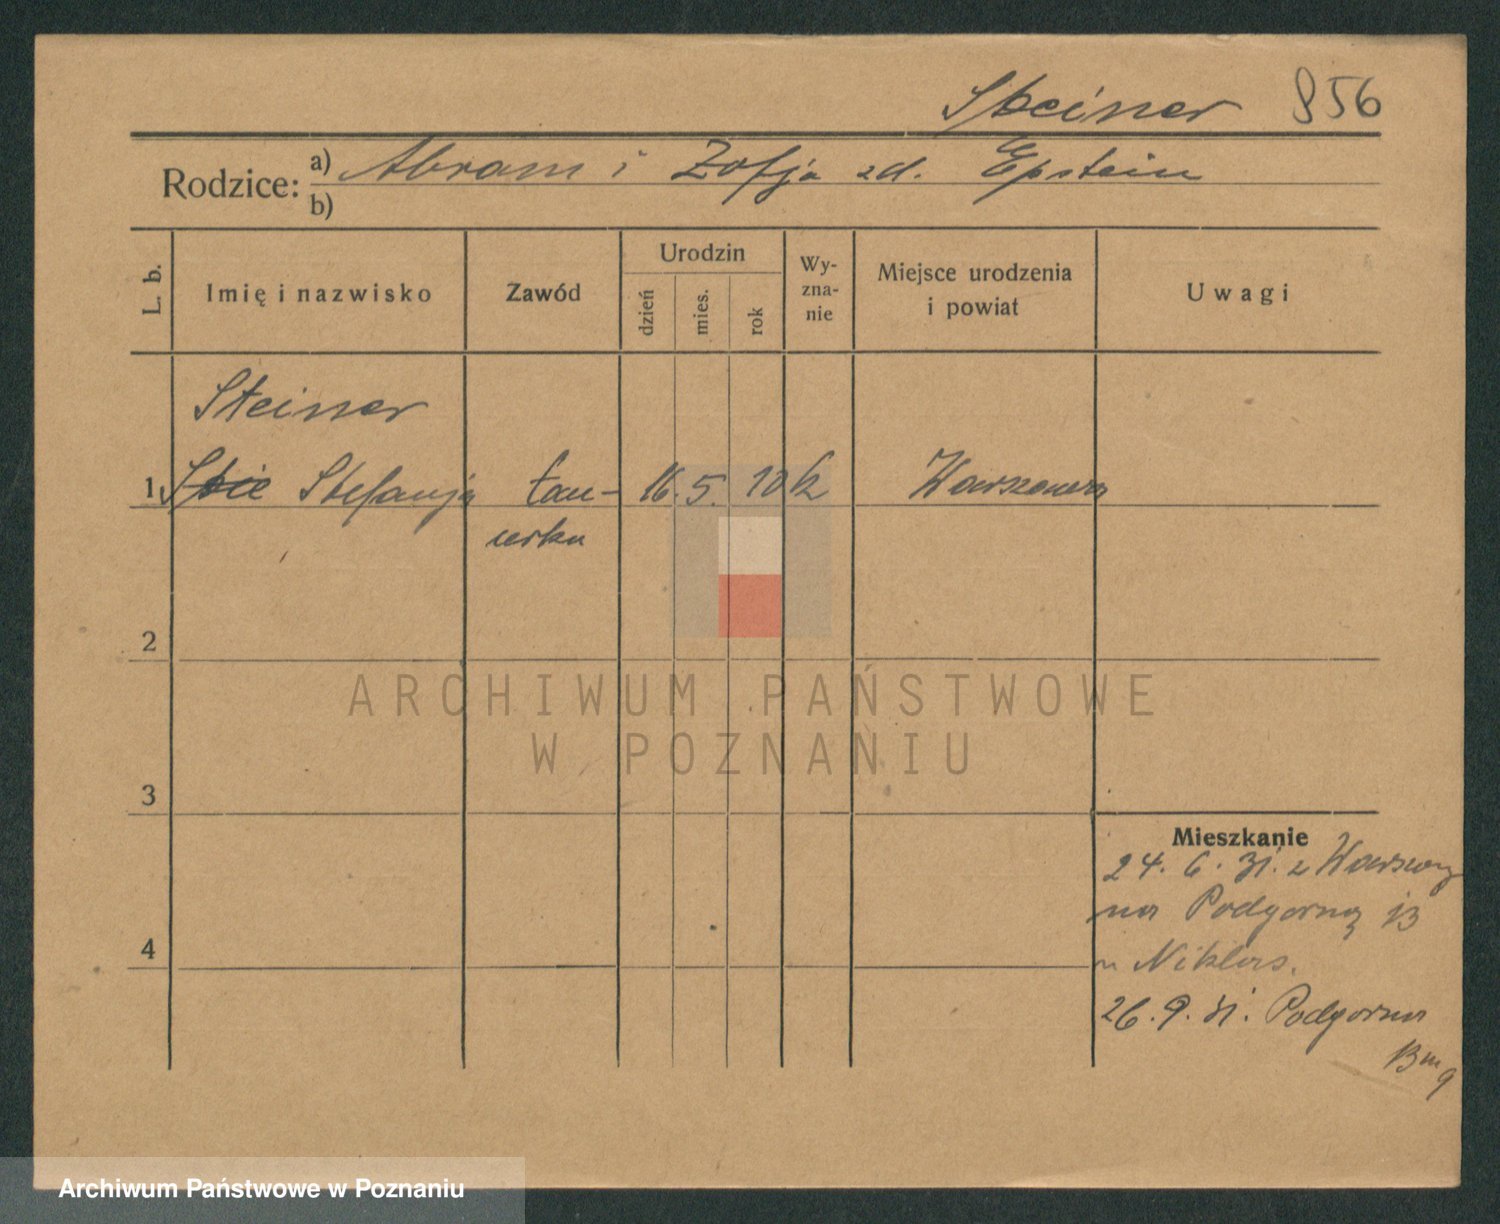 Steiner 856
Rodzice: a) Abram i Zofja zd. Epstein
b)
L. b. Imię i nazwisko Zawód Urodzin dzień mies. rok Wy-zna-nie Miejsce urodzenia i powiat Uwagi
Steiner
1 Stefanja tan- 16. 5. 10 Warszawa
cerka
2
ARCHIWUM PAŃSTWOWE
W POZNANIU
3
Mieszkanie
24. 6. 31. z Warszawy
na Podgorną 13
u Niklas.
4
26. 9. 31. Podgorna
13 m 9
Archiwum Państwowe w Poznaniu